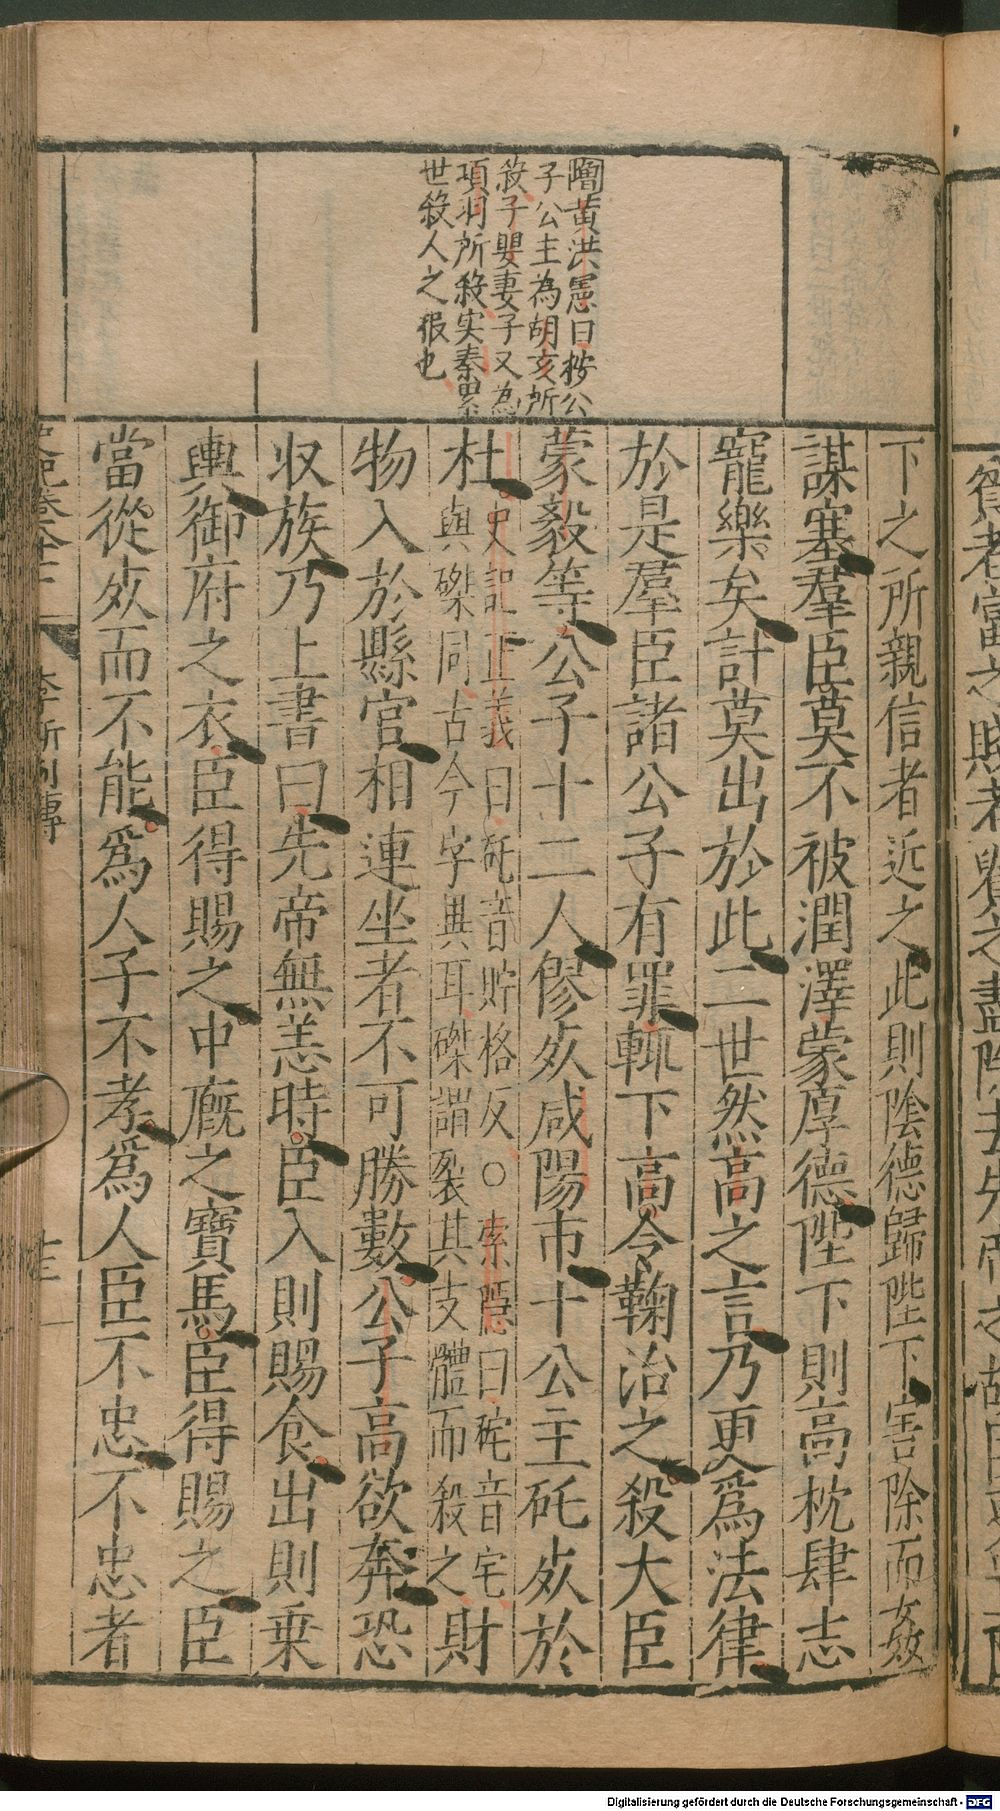 隋黃洪憲曰按公
子公主為胡亥所
殺子嬰妻子又為
項羽所殺实秦累
世殺人之報也
下之所親信者近之此則陰德歸陛下害除而姦
謀塞羣臣莫不被潤澤蒙厚德陛下則高枕肆志
寵樂矣計莫出於此二世然高之言乃更爲法律
於是羣臣諸公子有罪輒下高令鞠治之殺大臣
蒙毅等公子十二人僇𣦸咸陽市十公主矺𣦸於
杜史記正義曰矺音貯格反○索隱曰矺音宅
與磔同古今字異耳磔謂裂其支體而殺之財
物入於縣官相連坐者不可勝數公子高欲奔恐
收族乃上書曰先帝無恙時臣入則賜食出則乗
輿御府之衣臣得賜之中廐之寶馬臣得賜之臣
當從𣦸而不能爲人子不孝爲人臣不忠不忠者
李斯列傳
Digitalisierung gefördert durch die Deutsche Forschungsgemeinschaft - DFG